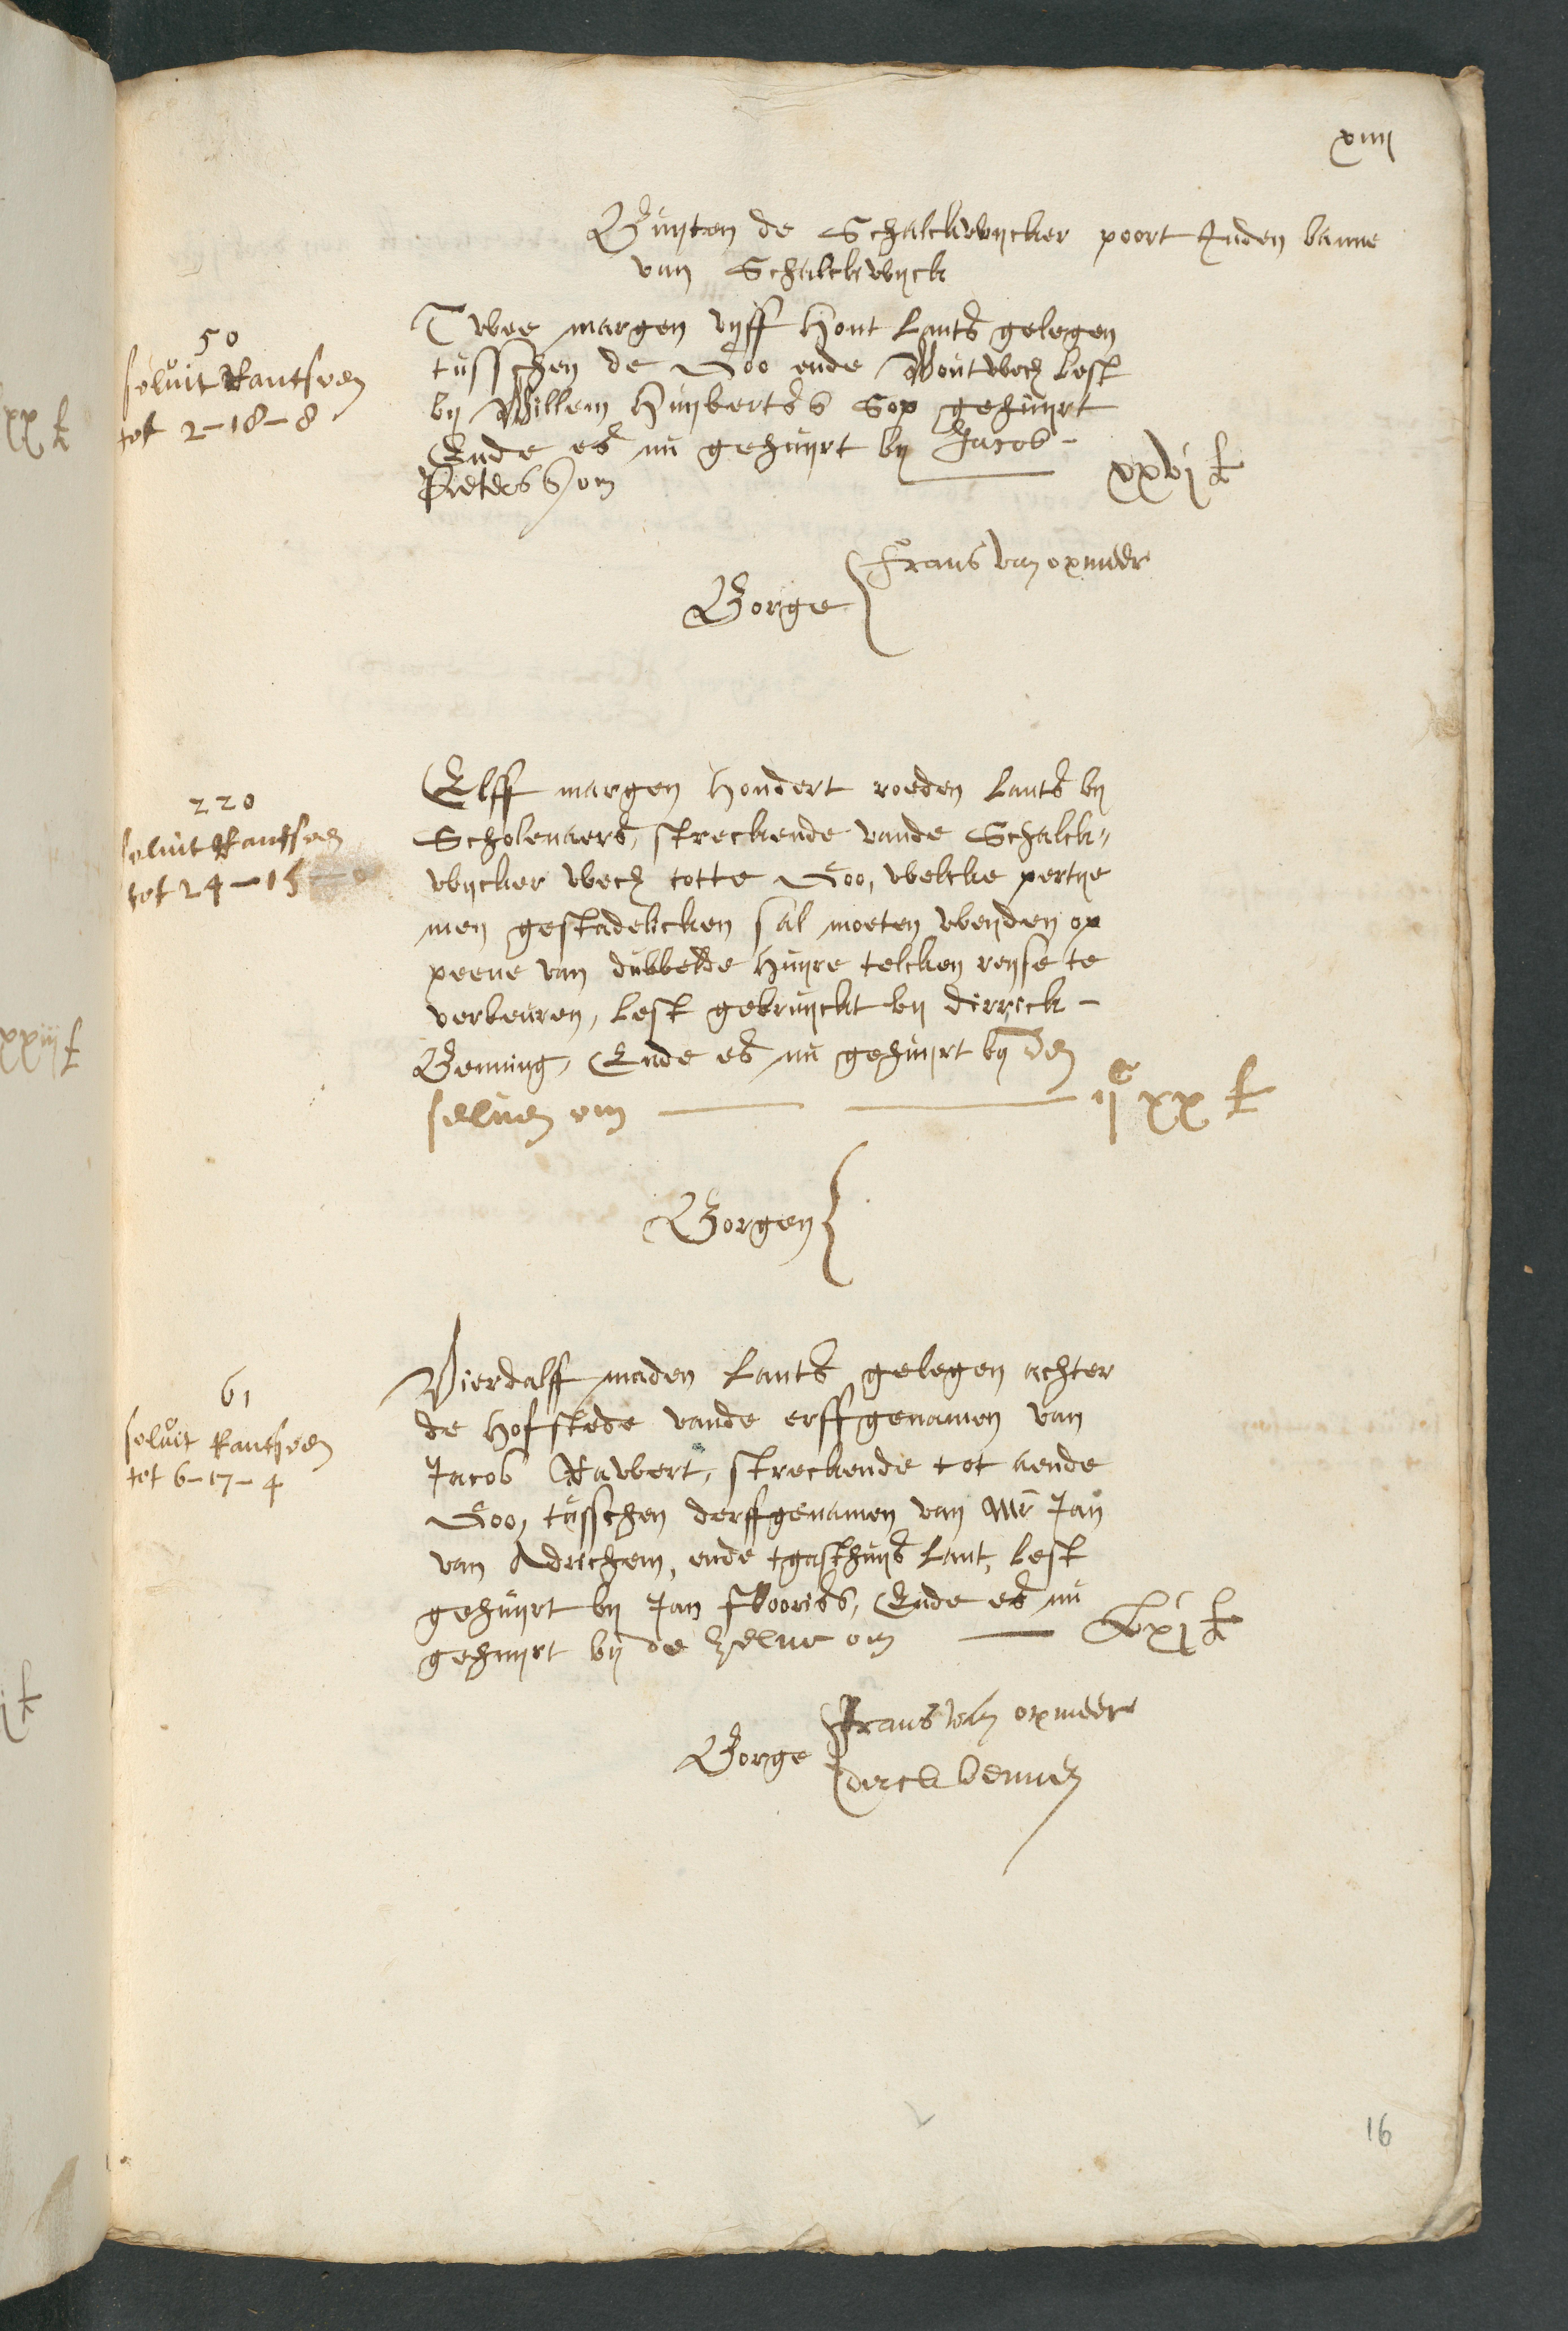 xiiij
Buyten de Schalckwycker poort Inden banne
van Schalckwyck
50
solvit Rantsoen
tot 2-18-8
Twee margen vyff Hont Lants gelegen
tusschen de Goo ende Wout wech Lest
by Willem Huyberts Sop gehuyrt
Ende es nu gehuyrt by Jacob-
Pieters Som
xxvj £
Frans van opmeer
Borge
220
solvit Rantsoen
tot 24-15-0
Elff margen Hondert roeden Lants by
Scholenaers, streckende vande Schalck-
wycker wech totte Goo, welcke pertye
men gestadelicken sal moeten weyden op
peene van dubbelde Huyre telcken reyse te
verbeuren, Lest gebruyckt by dirrick-
Benning, Ende es nu gehuyrt by den
selven om
ijc xx £
Borgen
61
solvit Rantsoen
tot 6-17-4
Vierdalff maden Lants gelegen achter
de Hofstede vande erffgenamen van
Jacob Rawert, streckende tot aende
Goo, tusschen derffgenamen van Mr Jan
van Adrichem, ende tgasthuys Lant, Lest
gehuyrt by Jan floorissz, Ende es nu
gehuyrt by de zelve om
Lxj £
Frans van opmeer
Borge
dirck bennin
16